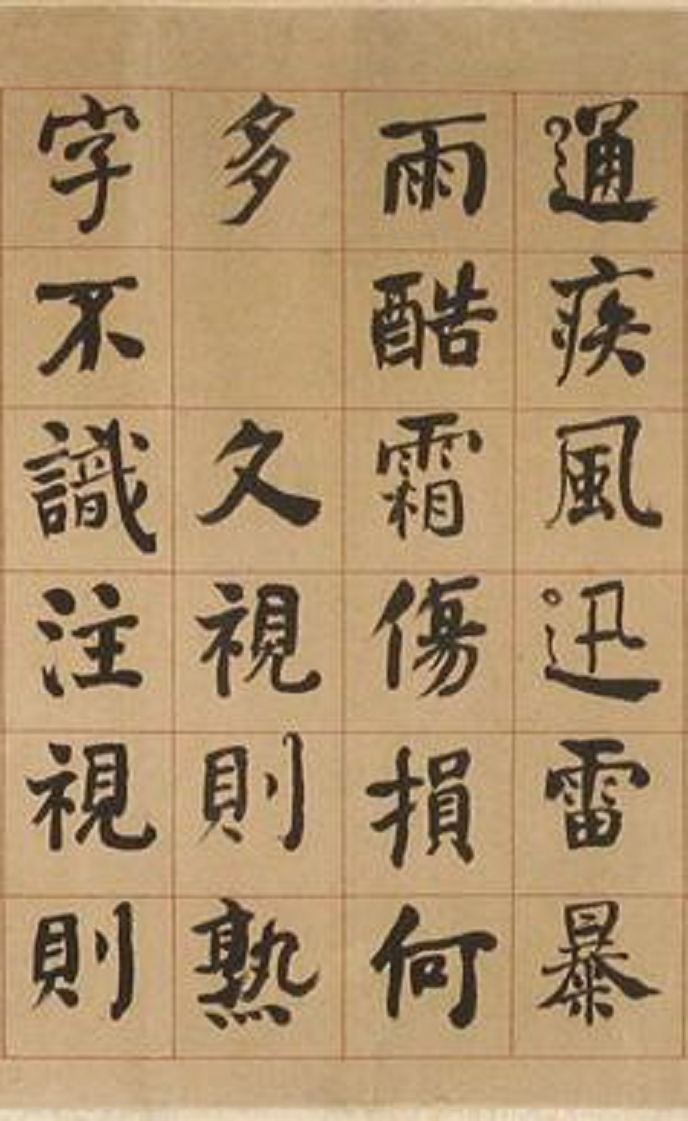 通疾風迅雷暴
雨酷霜傷損何
多 久視則熟
字不識注視則